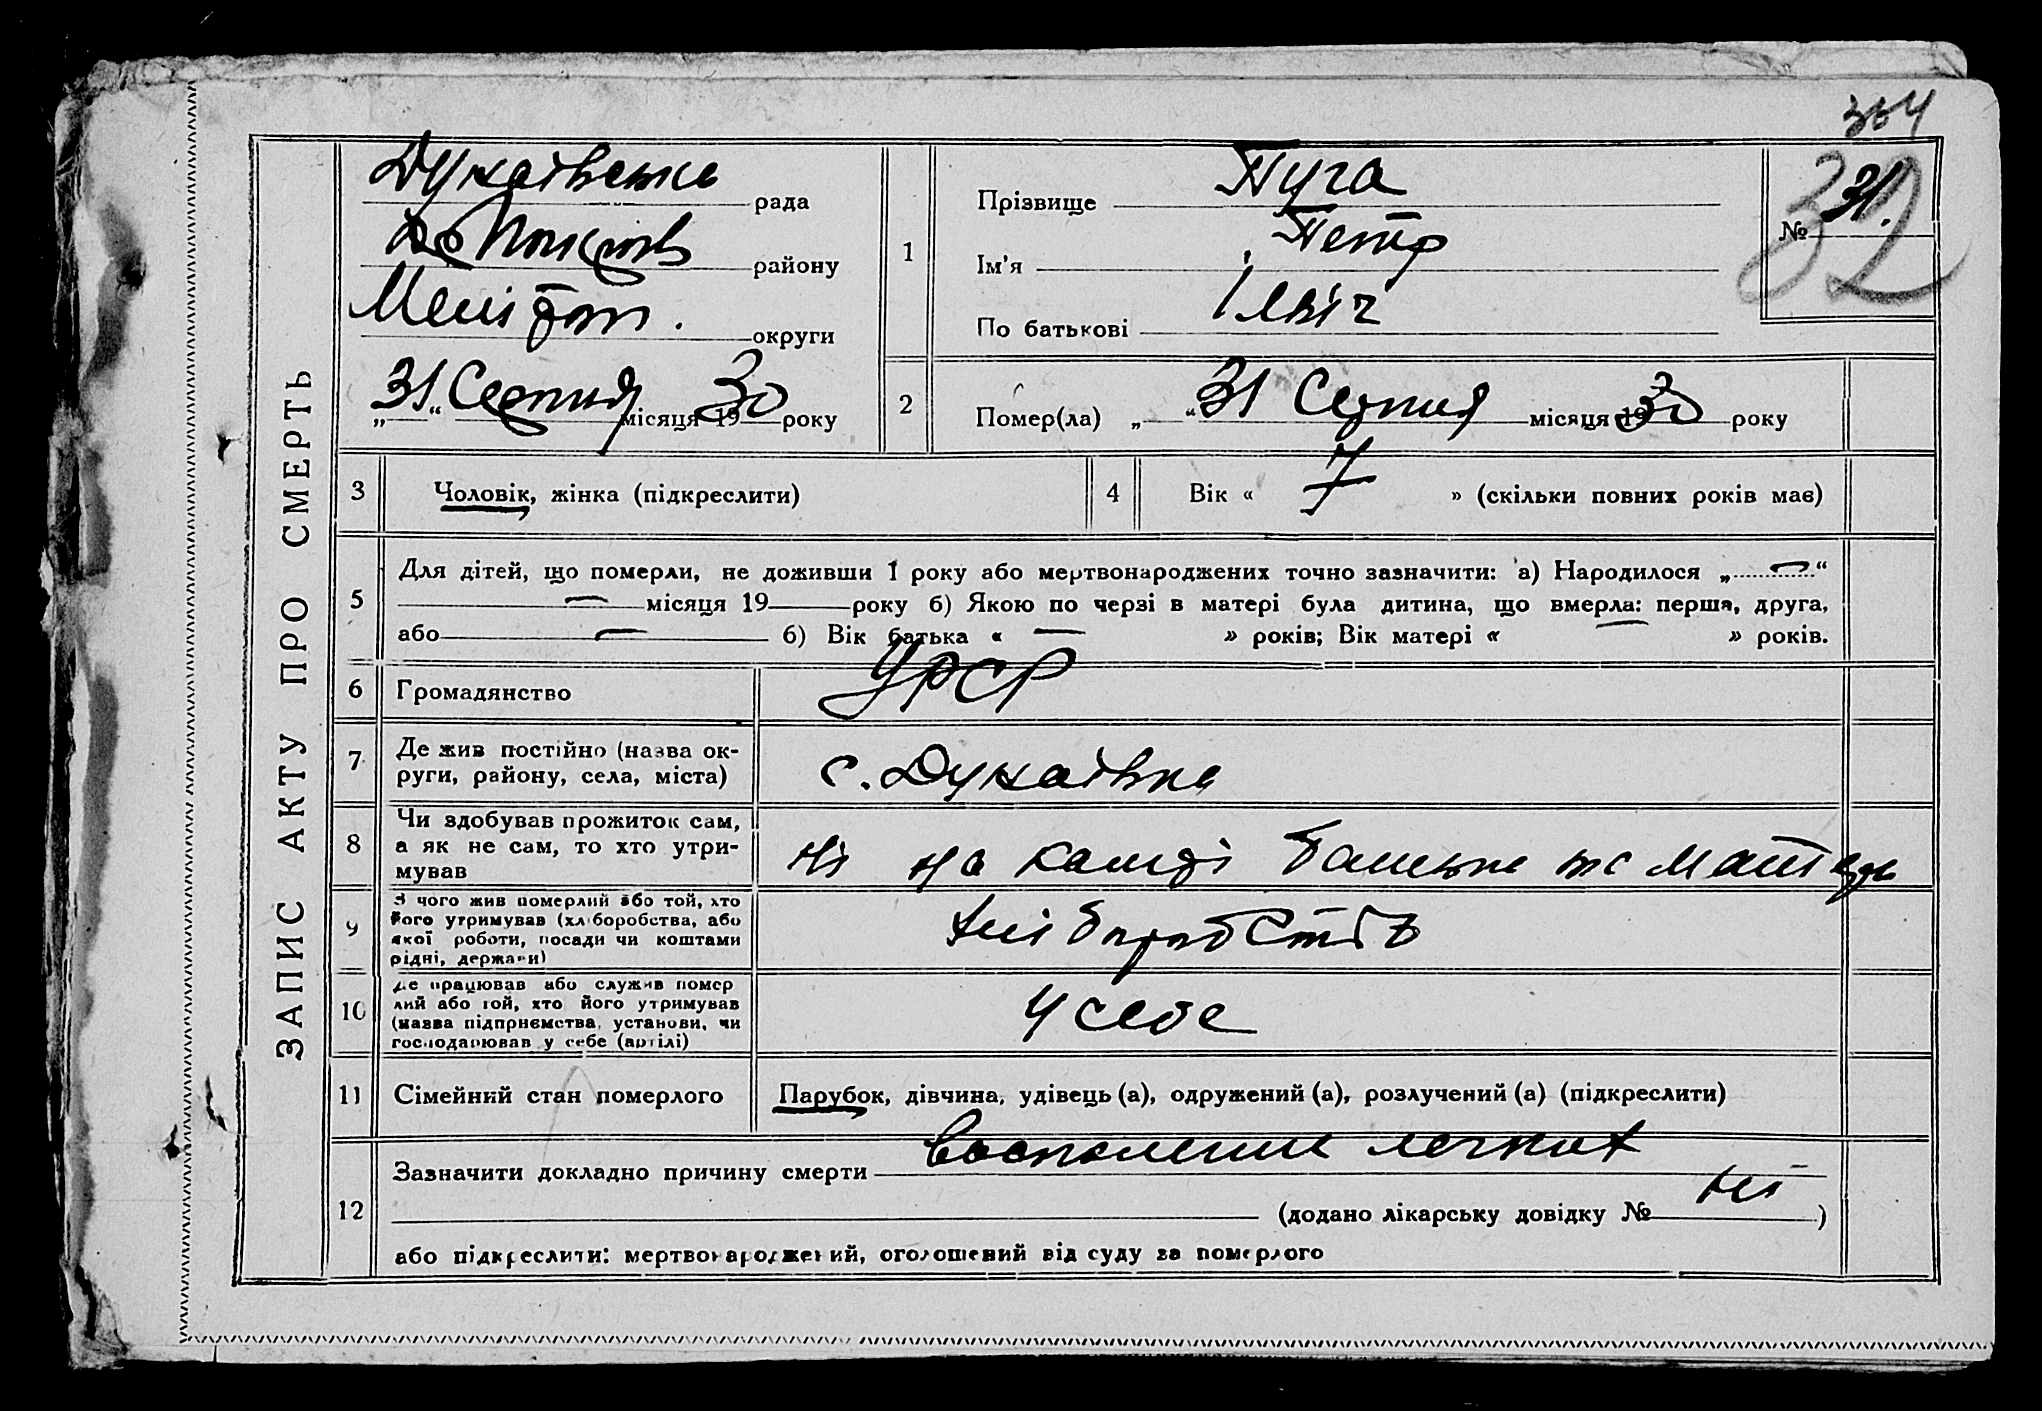 304
ЗАПИС АКТУ ПРО СМЕРТЬ
Дунаївська рада
району
Меліտոп. округи
„31“ Серпня місяця 1930 року
№ 31.
32
1
Прізвище Пуга
Ім’я Петр
По батькові Ілвіч
2
Помер(ла) „31“ Серпня місяця 1930 року
3
Чоловік, жінка (підкреслити)
4
Вік « 7 » (скільки повних років має)
5
Для дітей, що померли, не доживши 1 року або мертвонароджених точно зазначити: а) Народилося „—“
— місяця 19 року б) Якою по черзі в матері була дитина, що вмерла: перша, друга,
або — б) Вік батька « — » років; Вік матері « — » років.
6
Громадянство УРСР
7
Де жив постійно (назва ок-
руги, району, села, міста)
с. Дунаївка
8
Чи здобував прожиток сам,
а як не сам, то хто утри-
мував
Ні на кошті батька та матері
9
З чого жив померлий або той, хто
його утримував (хліборобства, або
якої роботи, посади чи коштами
рідні, держави)
Хліборобство
10
Де працював або служив помер
лий або той, хто його утримував
(назва підприємства, установи, чи
господарював у себе (артілі)
У себе
11
Сімейний стан померлого
Парубок, дівчина, удівець (а), одружений (а), розлучений (а) (підкреслити)
12
Зазначити докладно причину смерти Воспаление легких
(додано лікарську довідку № Ні )
або підкреслити: мертвонароджений, оголошений від суду за померлого